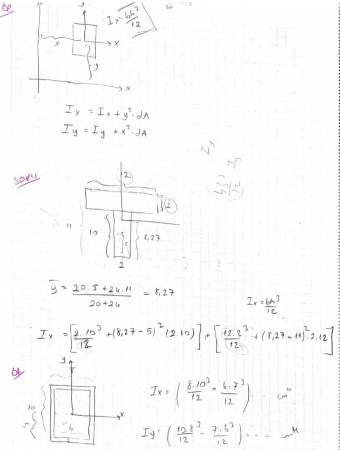 Ix = bh³/12
y
x
x
y
x
Ix = Ix + y²·dA
Iy = Iy + x²·dA
12
2
11
10
8,27
2
ȳ = (20·5+24·11)/(20+24) = 8,27
Ix = bh³/12
Ix = [2·10³/12 + (8,27-5)²·(2·10)] + [12·2³/12 + (8,27-11)²·2·12]
y
x
10
7
6
Ix = (8·10³/12 - 6·7³/12) ... cm⁴
Iy = (10·8³/12 - 7·6³/12) = ... cm⁴